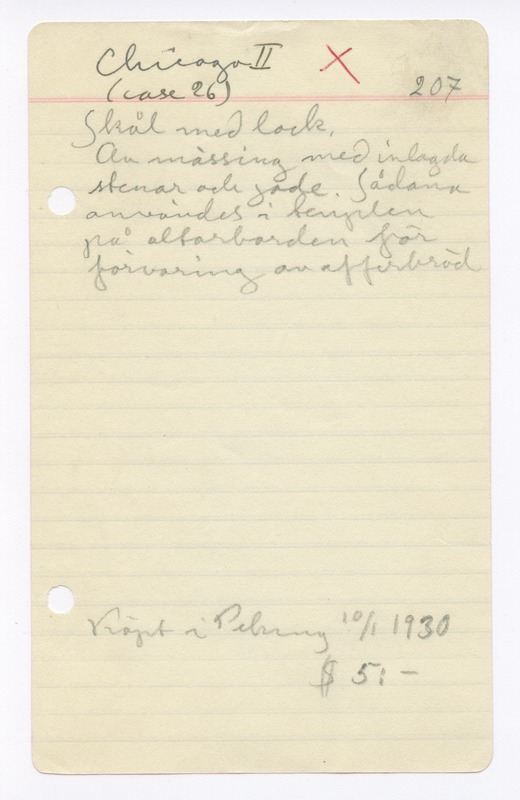 Chicago II X
(case 26) 207
Skål med lock.
Av mässing med inlagda
stenar och jade. Sådana
användes i templen
på altarborden för
förvaring av offerbröd
Köpt i Peking 10/1 1930
$ 5:-